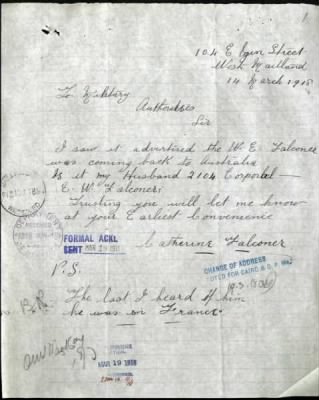 104 Elgin Street
West Maitland
14 March 1918
To Military
Authorities
Sir
I saw it advertised the W. E. Falconer
was coming back to Australia
Is it my Husband 2104 Corporal
E. W. Falconer
Trusting you will let me know
at your Earliest Convenience
Catherine Falconer
FORMAL ACKL
SENT MAR 19 1918
P.S.
CHANGE OF ADDRESS
NOTED FOR
The last I heard of him
he was in France
B.R.
MAR 19 1918